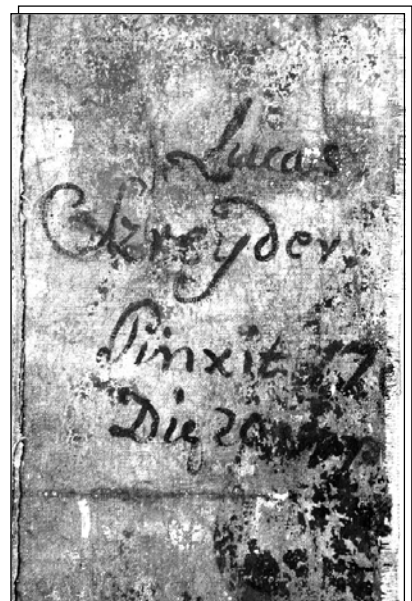 Lucas
Skreyder
Pinxit 17
Die 20